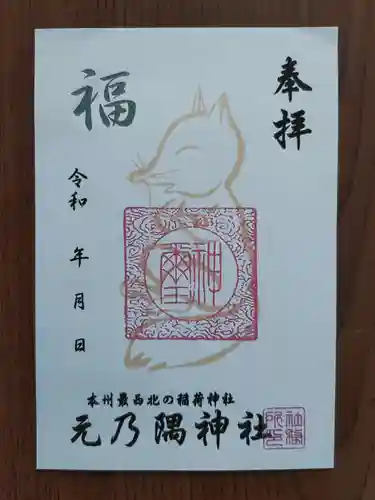 奉拝
福
令和 年 月 日
神璽
本州最西北の稲荷神社
元乃隅神社
社務所之印